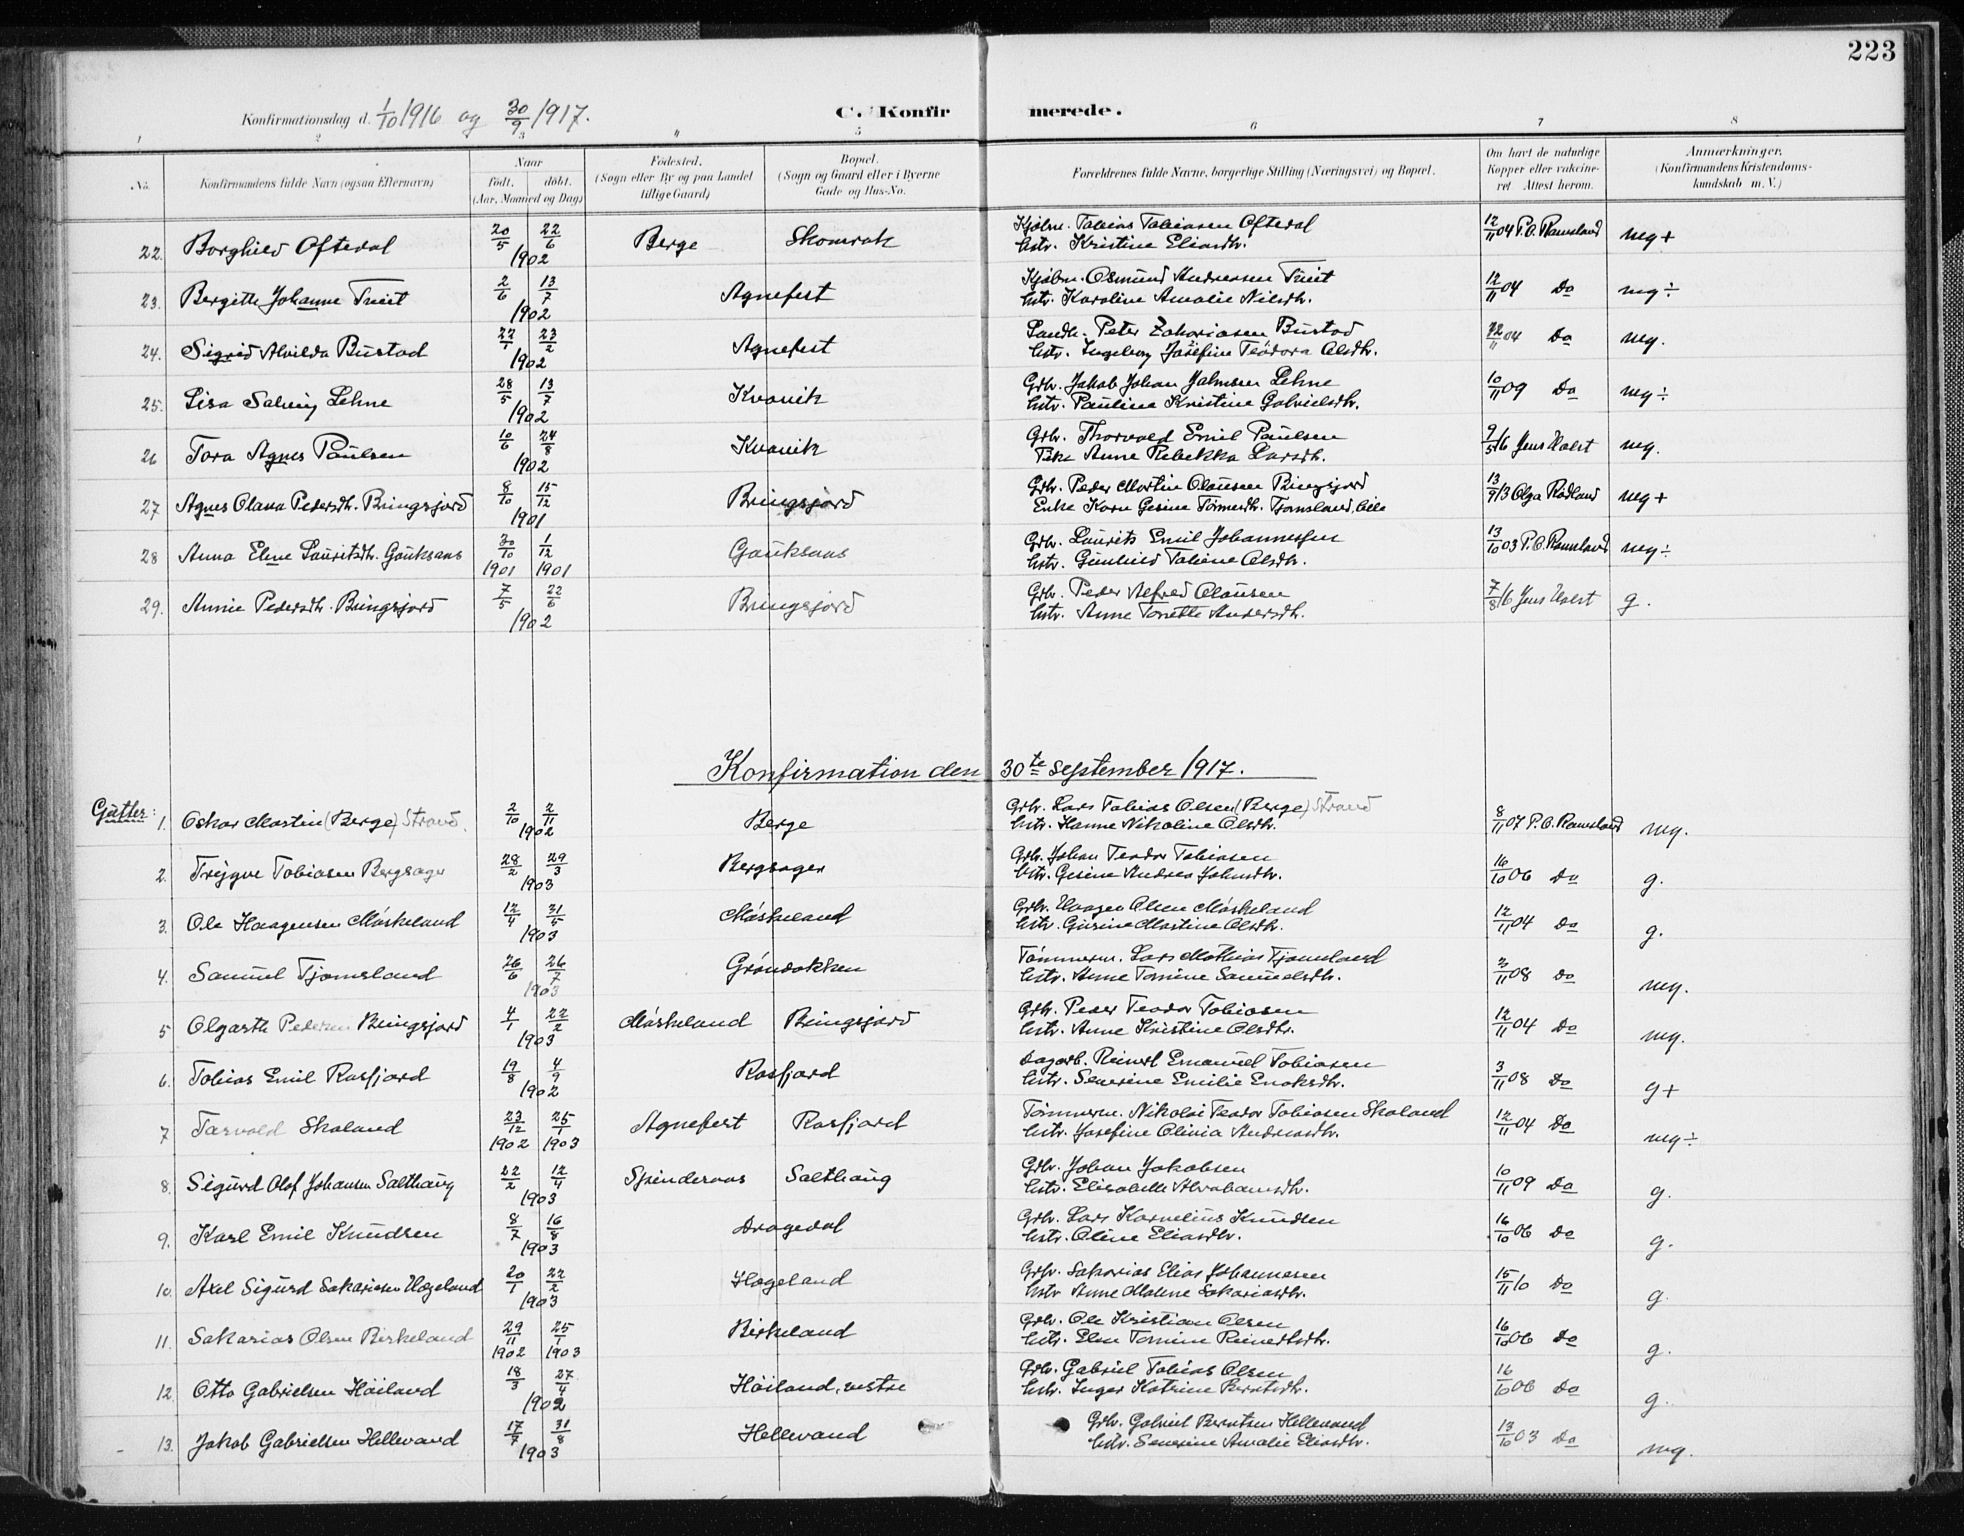 223
Konfirmationsdag d. 1/10 1916 og 30/9 1917.
C. Konfirmerede.
1 2 3 4 5 6 7 8
No. Konfirmandens fulde Navn (ogsaa Efternavn) Naar født. døbt. (Aar, Maaned og Dag) Fødested. (Sogn eller By og paa Landet tillige Gaard) Bopæl. (Sogn og Gaard eller i Byerne Gade og Hus-No. Forældrenes fulde Navne, borgerlige Stilling (Næringsvei) og Bopæl. Om havt de naturlige Kopper eller vakcineret. Attest herom. Anmærkninger. (Konfirmandens Kristendomskundskab m. V.)
22. Borghild Oftedal 20/5 22/6 1902 Berge Skomrak Kjøbm. Tobias Tobiasen Oftedal 12/11 04 P.O. Ramsland mg+
hstr. Kristine Eliasdtr.
23. Bergitte Johanne Tveit 2/6 13/7 1902 Agnefest Kjøbm. Osmund Andreasen Tveit 12/11 04 Do mg÷
hstr. Karoline Amalie Nilsdtr.
24. Sigrid Alvilda Bustad 22/1 23/2 1902 Agnefest Landh. Peter Zakariasen Bustad 12/11 04 Do mg.
hstr. Ingeborg Josefine Teodora Olsdtr.
25. Lisa Salvig Lehne 28/5 13/7 1902 Kvavik Grbr. Jakob Johan Jalmsen Lehne 10/11 09 Do mg÷
hstr. Pauline Kristine Gabrielsdtr.
26 Tora Agnes Paulsen 10/6 24/8 1902 Kvavik Grbr. Thorvald Emil Paulsen 9/5 16 Jens Ualst mg.
Pike Anne Rebekka Larsdtr.
27 Agnes Olava Pedersdtr. Bringsjord 8/10 15/12 1901 Bringsjord Grbr. Peder Martin Olausen Bringsjord 13/9 13 Olga Rødland mg+
Enke Karn Gesine Tønnesdtr. Tjomsland, lille
28 Anna Elene Lauritsdtr. Gauksaas 30/10 1901 1/12 1901 Gauksaas Grbr. Laurits Emil Johannessen 13/10 03 P.O. Ramsland mg÷
hstr. Gunhild Taliene Olsdtr.
29. Annie Pedersdtr. Bringsjord 7/5 22/6 1902 Bringsjord Grbr. Peder Alfred Olausen 7/8 16 Jens Ualst g.
hstr. Anne Tonette Andersdtr.
Konfirmation den 30te september 1917.
Gutter:
1. Oskar Martin (Berge) Strand. 2/10 2/11 1902 Berge Grbr. Lars Tobias Olsen (Berge) Strand 8/11 07 P.O. Ramsland mg.
hstr. Hanne Nikoline Olsdtr.
2. Trygve Tobiasen Bergsager 28/2 29/3 1903 Bergsager Grbr. Johan Teodor Tobiasen 16/10 06 Do g.
hstr. Gesine Andrea Johnsdtr.
3. Ole Haagensen Møskeland 12/4 31/5 1903 Møskeland Grbr. Haagen Olsen Møskeland 12/11 04 Do g.
hstr. Gusine Martine Olsdtr.
4. Samuel Tjomsland 26/6 26/7 1903 Grøndokken Tømmerm. Lars Mathias Tjomsland 3/11 08 Do mg.
hstr. Anne Tomine Samuelsdtr.
5 Olgarth Pedersen Bringsjord 4/1 22/2 1903 Møskeland Bringsjord Grbr. Peder Teodor Tobiasen 12/11 04 Do mg.
hstr. Anne Kristine Olsdtr.
6. Tobias Emil Rosfjord 19/8 4/9 1902 Rosfjord Dagarb. Reinert Emanuel Tobiasen 3/11 08 Do g+
hstr. Severine Emilie Enoksdtr.
7 Tarvald Skoland 23/12 1902 25/1 1903 Agnefest Rosfjord Tømmerm. Nikolai Teodor Tobiasen Skoland 12/11 04 Do mg÷
hstr. Josefine Olivia Andreasdtr.
8. Sigurd Olaf Johansen Salthaug 22/2 12/4 1903 Spinderaas Salthaug Grbr. Johan Jakobsen 10/11 09 Do g.
hstr. Elisabeth Abrahamsdtr.
9. Karl Emil Knudsen 8/7 16/8 1903 Dragedal Grbr. Lars Kornelius Knudsen 16/10 06 Do g.
hstr. Oline Eliasdtr.
10. Axel Sigurd Sakariasen Hægeland 20/1 22/2 1903 Hægeland Grbr. Sakarias Elias Johannesen 15/11 10 Do g.
hstr Anne Malene Sakariasdtr.
11. Sakarias Olsen Birkeland 29/11 1902 25/1 1903 Birkeland Grbr. Ole Kristian Olsen 16/10 06 Do g.
hstr. Elen Tomine Reinertsdtr.
12. Otto Gabrielsen Høiland 18/3 27/4 1902 Høiland, vestre Grbr. Gabriel Tobias Olsen 16/10 06 Do g.
hstr. Inger Katrine Berntsdtr.
13. Jakob Gabrielsen Hellevand 17/7 31/8 1903 Hellevand Grbr. Gabriel Berntsen Hellevand 13/10 03 Do mg.
hstr. Severine Amalie Eliasdtr.